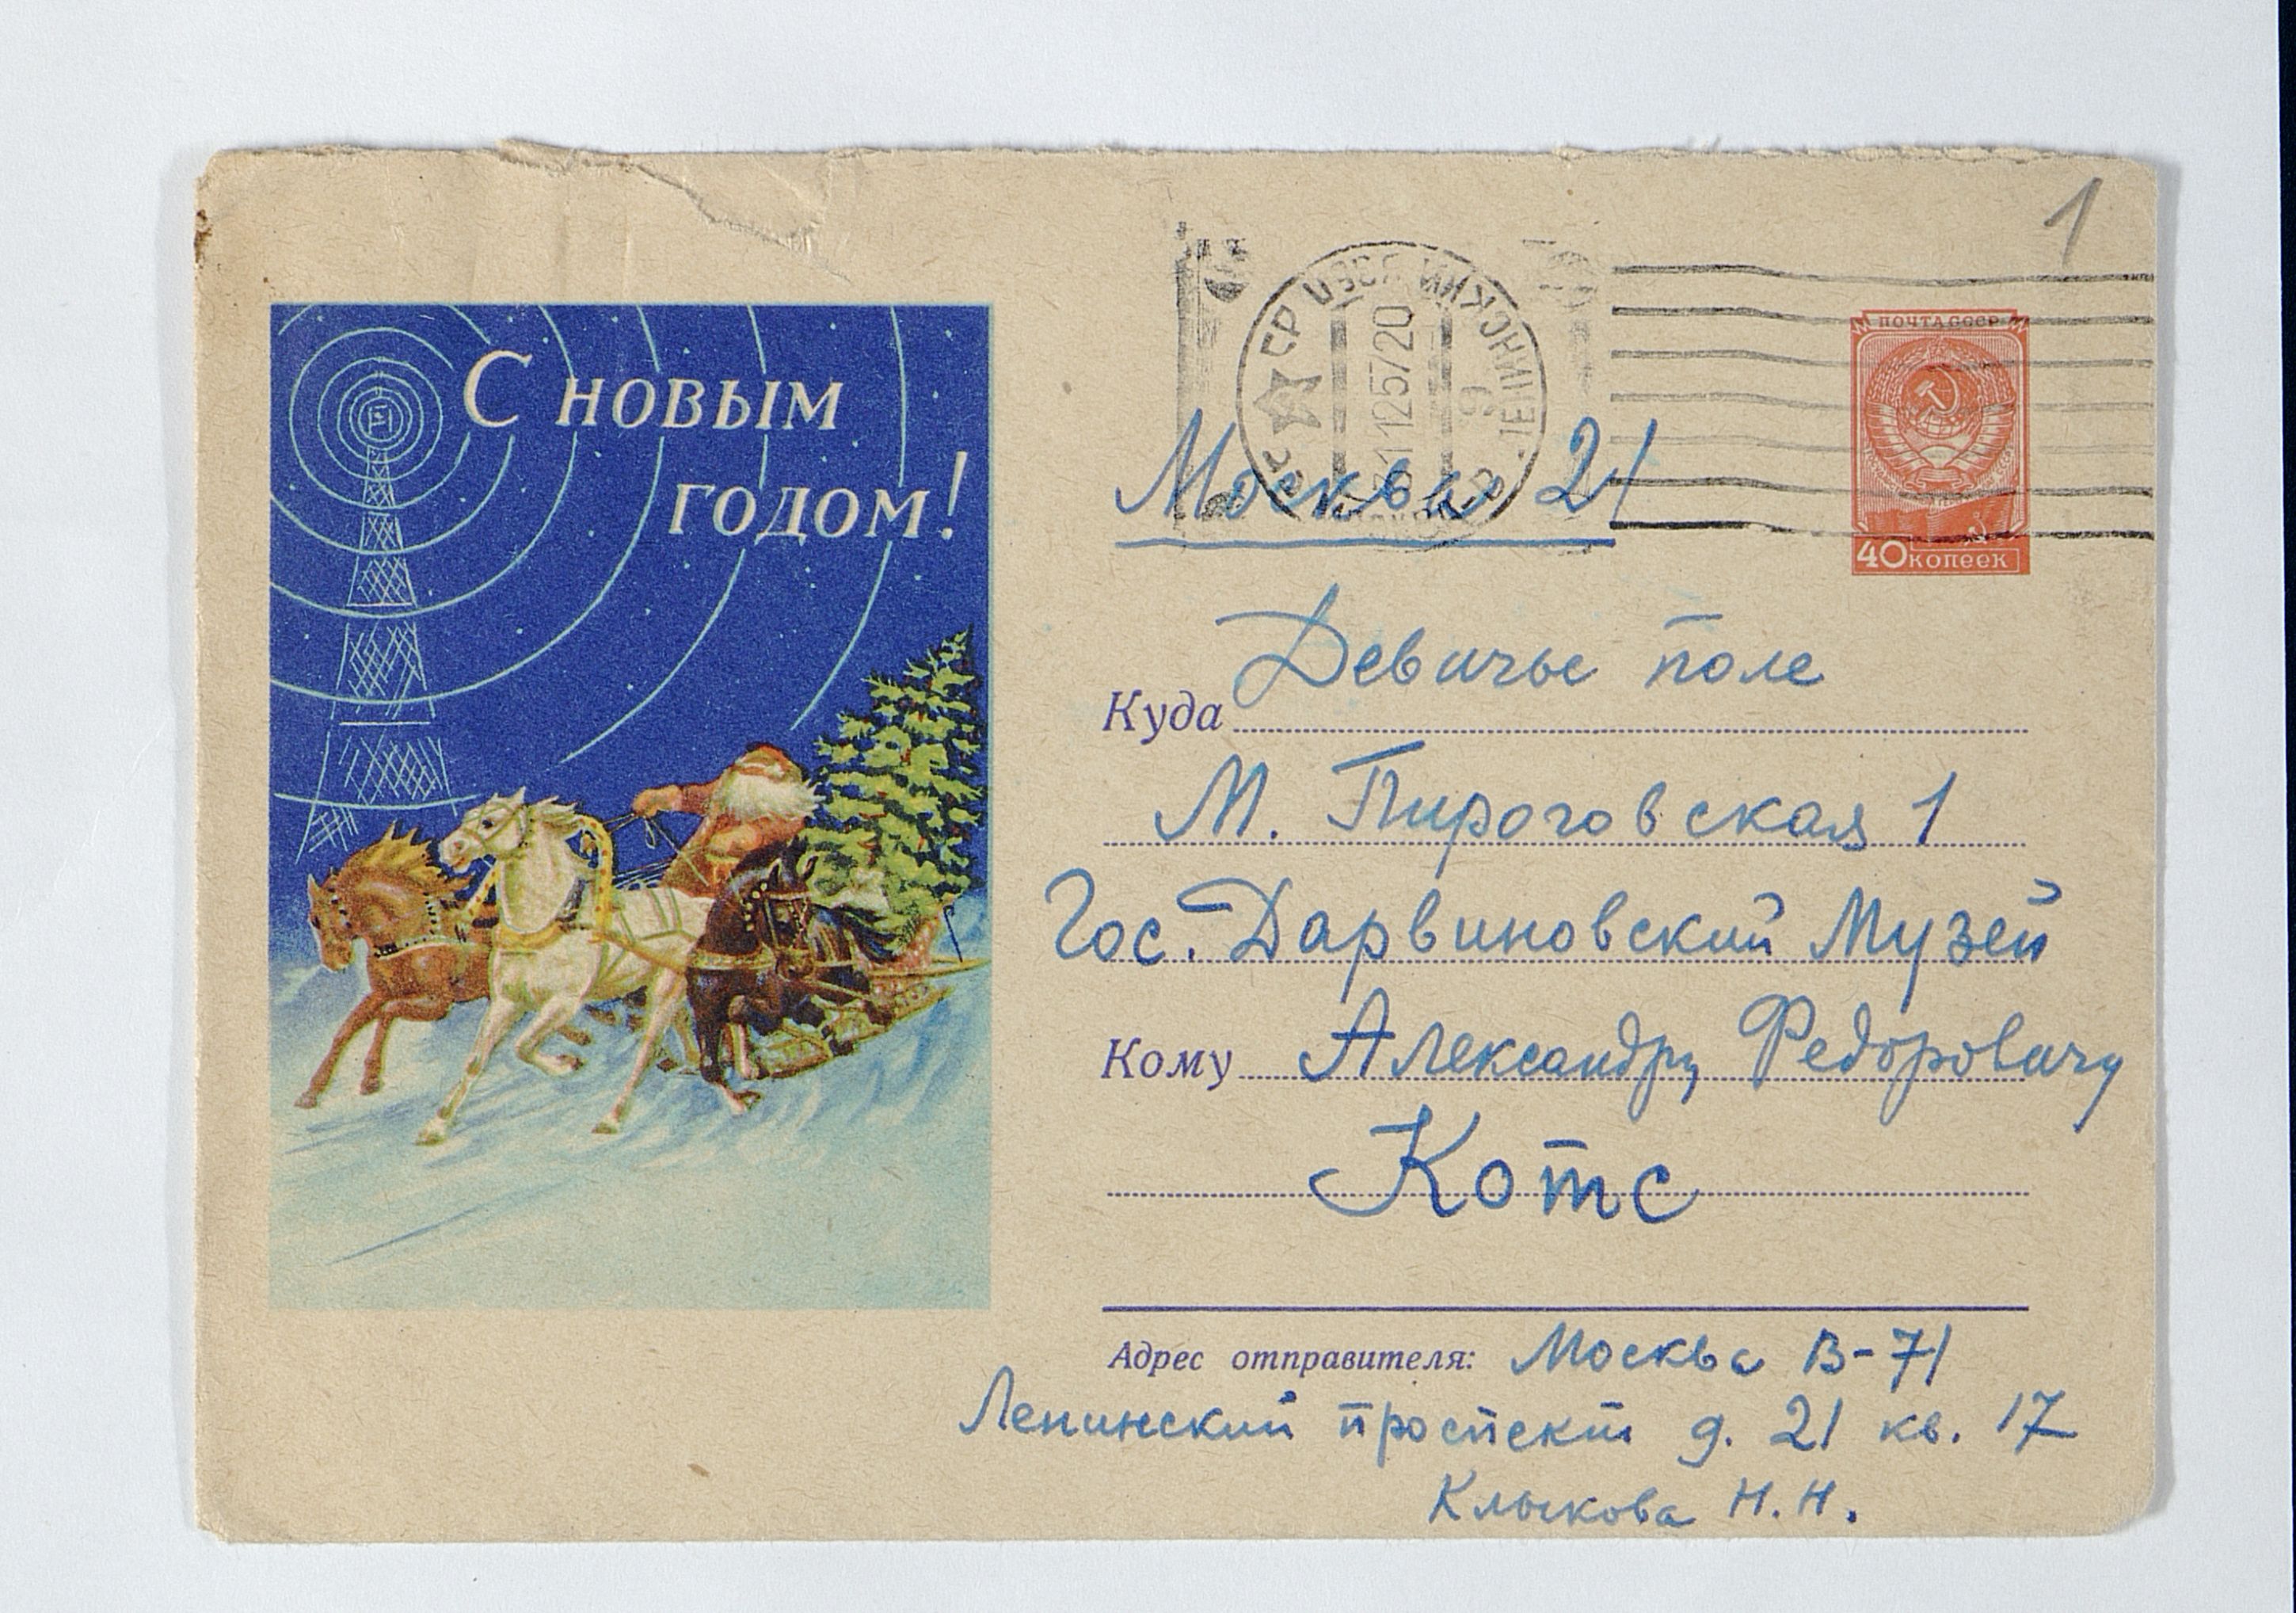 С НОВЫМ
ГОДОМ!
1
311257 20
ПОЧТА СССР
40 КОПЕЕК
Москва 21
Куда Девичье поле
М. Пироговская 1
Гос. Дарвиновский Музей
Кому Александру Федоровичу
Котс
Адрес отправителя: Москва В-71
Ленинский проспект д. 21 кв. 17
Клыкова Н.Н.